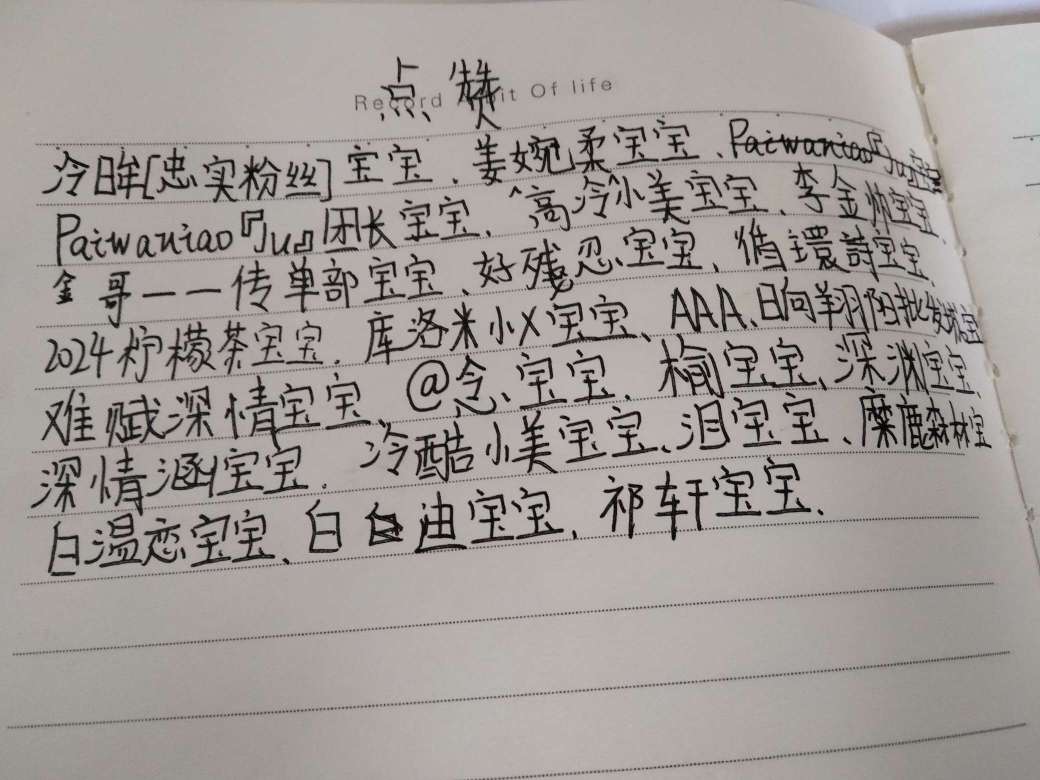 点赞
Record it Of life
冷眸[忠实粉丝]宝宝、姜婉柔宝宝、Paiwaniao『Ju宝宝
Paiwaniao『Ju』团长宝宝、高冷小美宝宝、李金帅宝宝、
金哥一一传单部宝宝、好残忍宝宝、循環詩宝宝、
2024柠檬茶宝宝、库洛米小X宝宝、AAA、日向翔阳批发
难赋深情宝宝、@念、宝宝、榆宝宝、深渊宝宝、
深情涵宝宝、冷酷小美宝宝、泪宝宝、麋鹿森林宝
白温恋宝宝、白迪宝宝、祁轩宝宝、